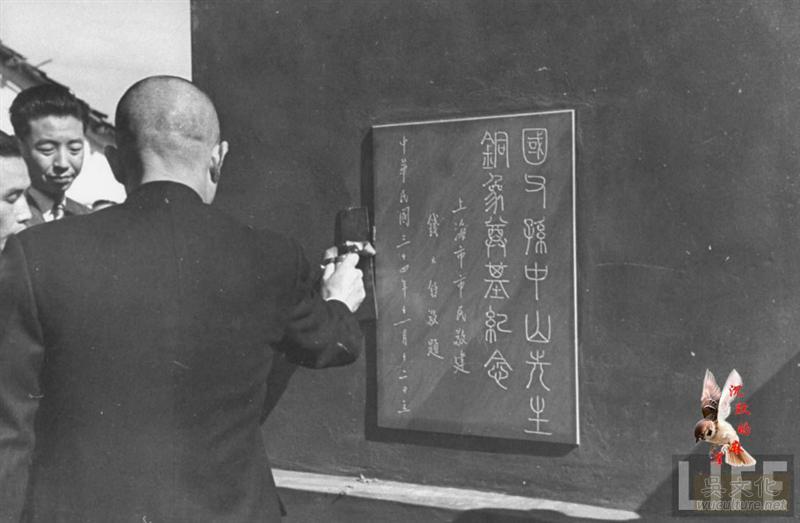 國父孫中山先生
銅象奠基紀念
上海市市民敬建
錢大鈞敬題
中華民國三十四年十一月十二日立
沉默的麻雀
LIFE
吳文化
wuculture.net